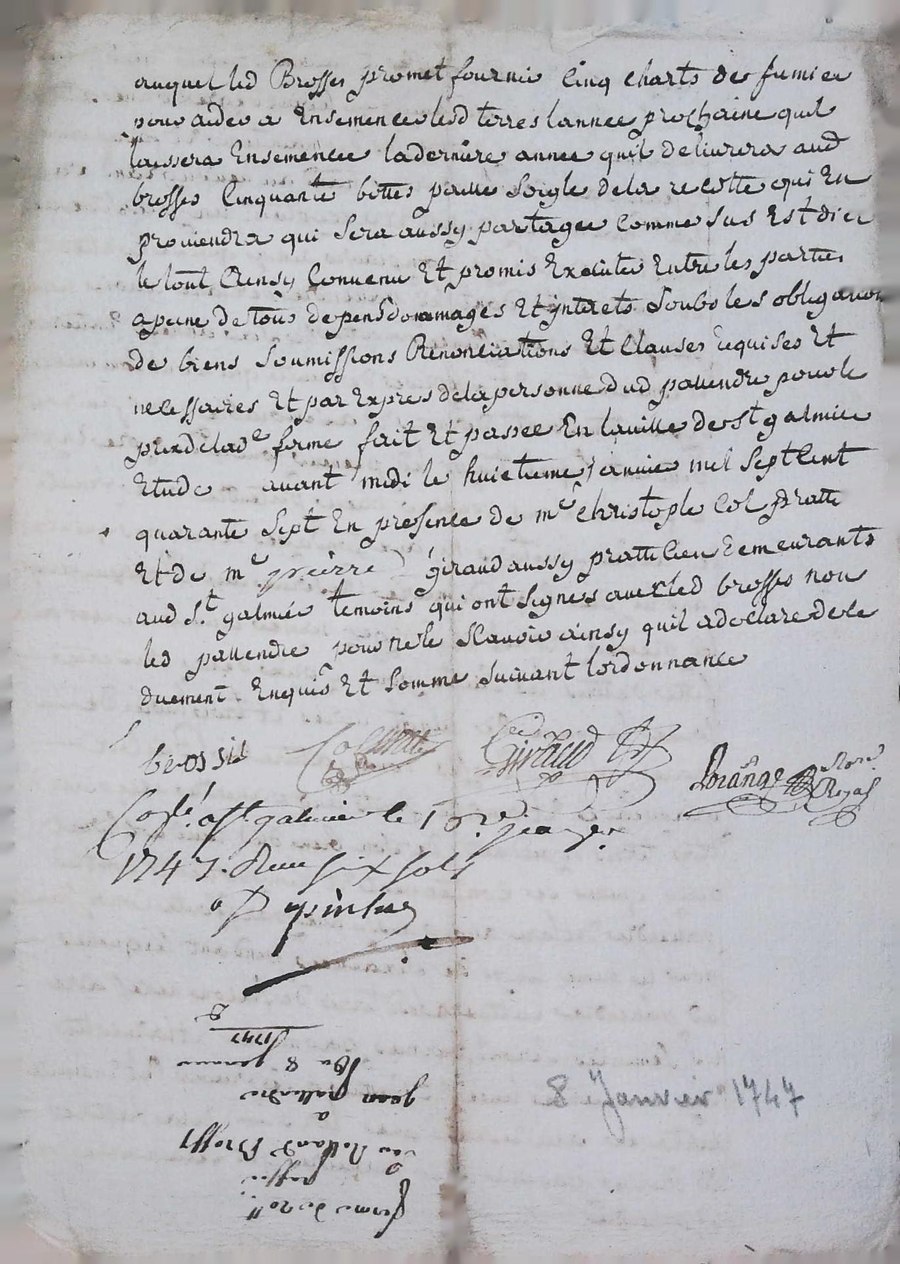 auquel led Brosses promet fournir Cinq charts de fumier
pour aider a Ensemencer lesd terres lannee prochaine quil
laissera Ensemencee laderniere annee quil delivrera aud
brosses Cinquante bottes paille Soigle dela recolte qui En
proviendra qui Sera aussy partagee Comme Sus Est dict
le tout Ainsy Convenu Et promis Executer Entre les parties
apeine de tous depens dommages Et jnterets Soubs les obligation
de biens Soumissions Renonciations Et Clauses Requises Et
necessaires Et par Expres dela personne dud pallendre pour le
prix delade ferme fait Et passee En laville de St galmier
Etude avant midi le huictieme janvier mil Sept Cent
quarante Sept En presence de me Christophe Col pratt
Et de me pierre giraud aussy pratticien demeurants
aud St. galmier temoins qui ont Signes avec led brosses non
led pallendre pour ne le Scavoir ainsy quil a declare de ce
duement Enquis Et Sommé Suivant lordonnance
brossis
Giraud
Lorange Nore Royal
a St galmier le janver
1747. Six Sols
8 Janvier 1747
ferme
Brosses
a
jean pallendre
du 8 janvier
1747